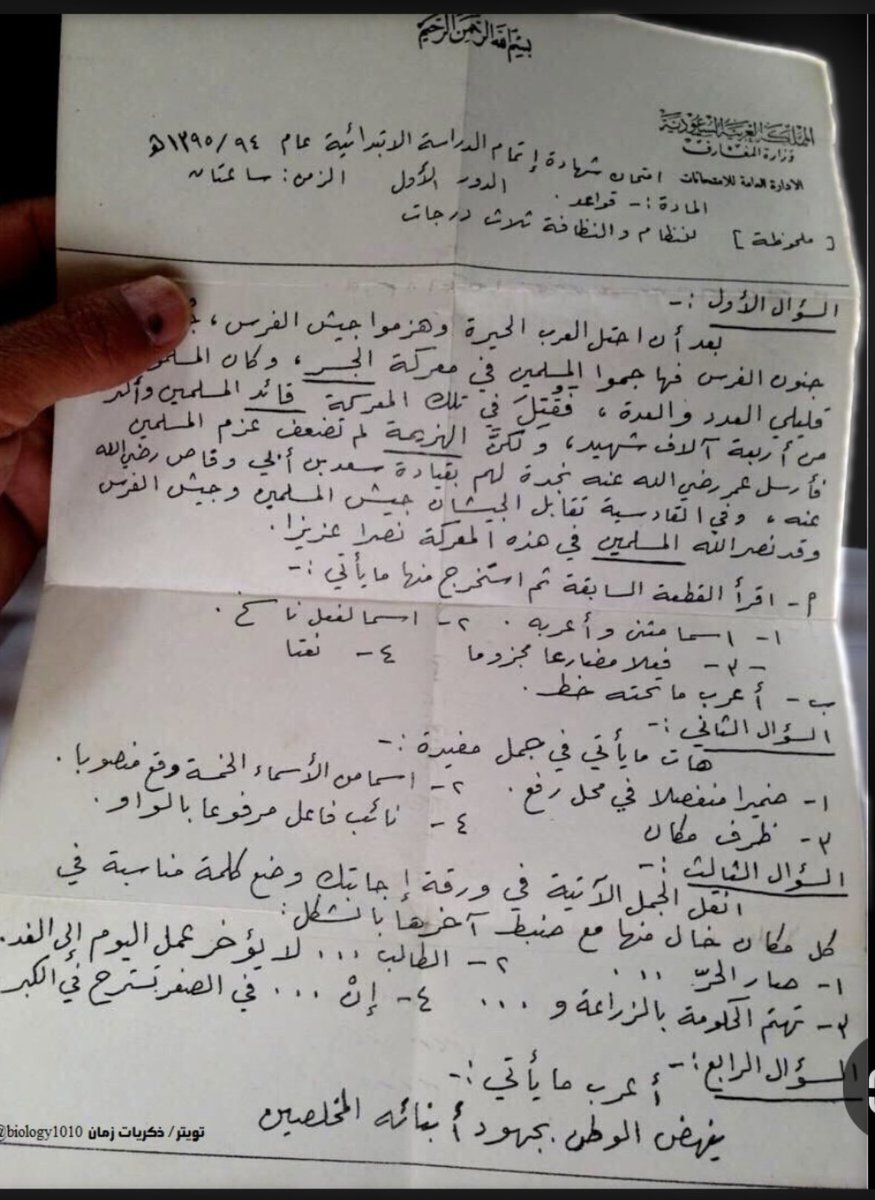 بسم الله الرحمن الرحيم
المملكة العربية السعودية
وزارة المعارف
الإدارة العامة للامتحانات
امتحان شهادة إتمام الدراسة الابتدائية عام ٩٤/١٣٩٥هـ
الدور الأول الزمن: ساعتان
المادة :- قواعد .
[ ملحوظة ] للنظام والنظافة ثلاث درجات
السؤال الأول :-
بعد أن احتل العرب الحيرة وهزموا جيش الفرس ،
جنون الفرس فهاجموا المسلمين في معركة الجسر ، وكان
قليلي العدد والعدة ، فقُتِلَ في تلك المعركة قائد المسلمين وأكثر
من أربعة آلاف شهيد ، ولكنَّ الهزيمة لم تضعف عزم المسلمين
فأرسل عمر رضي الله عنه نجدة لهم بقيادة سعد بن أبي وقاص رضي الله
عنه ، وفي القادسية تقابل الجيشان جيش المسلمين وجيش الفرس
وقد نصر الله المسلمين في هذه المعركة نصرا عزيزا .
أ- اقرأ القطعة السابقة ثم استخرج منها ما يأتي :-
١- اسما مثنى وأعربه . ٢- اسما لفعل ناسخ .
-٣- فعلا مضارعا مجزوما ٤- نعتا
ب- أعرب ما تحته خط .
السؤال الثاني :-
هات ما يأتي في جمل مفيدة :-
١- ضميرا منفصلا في محل رفع . ٢- اسما من الأسماء الخمسة وقع منصوبا .
٣- ظرف مكان ٤- نائب فاعل مرفوعا بالواو .
السؤال الثالث :-
انقل الجمل الآتية في ورقة إجابتك وضع كلمة مناسبة في
كل مكان خال منها مع ضبط آخرها بالشكل :
١- صار الحرّ ... ٢- الطالب ... لا يؤخر عمل اليوم إلى الغد .
٣- تهتم الحكومة بالزراعة و ... ٤- إنْ ... في الصغر تسترح في الكبر
السؤال الرابع :-
أعرب ما يأتي :-
ينهض الوطن بجهود أبنائه المخلصين
تويتر/ ذكريات زمان @biology1010